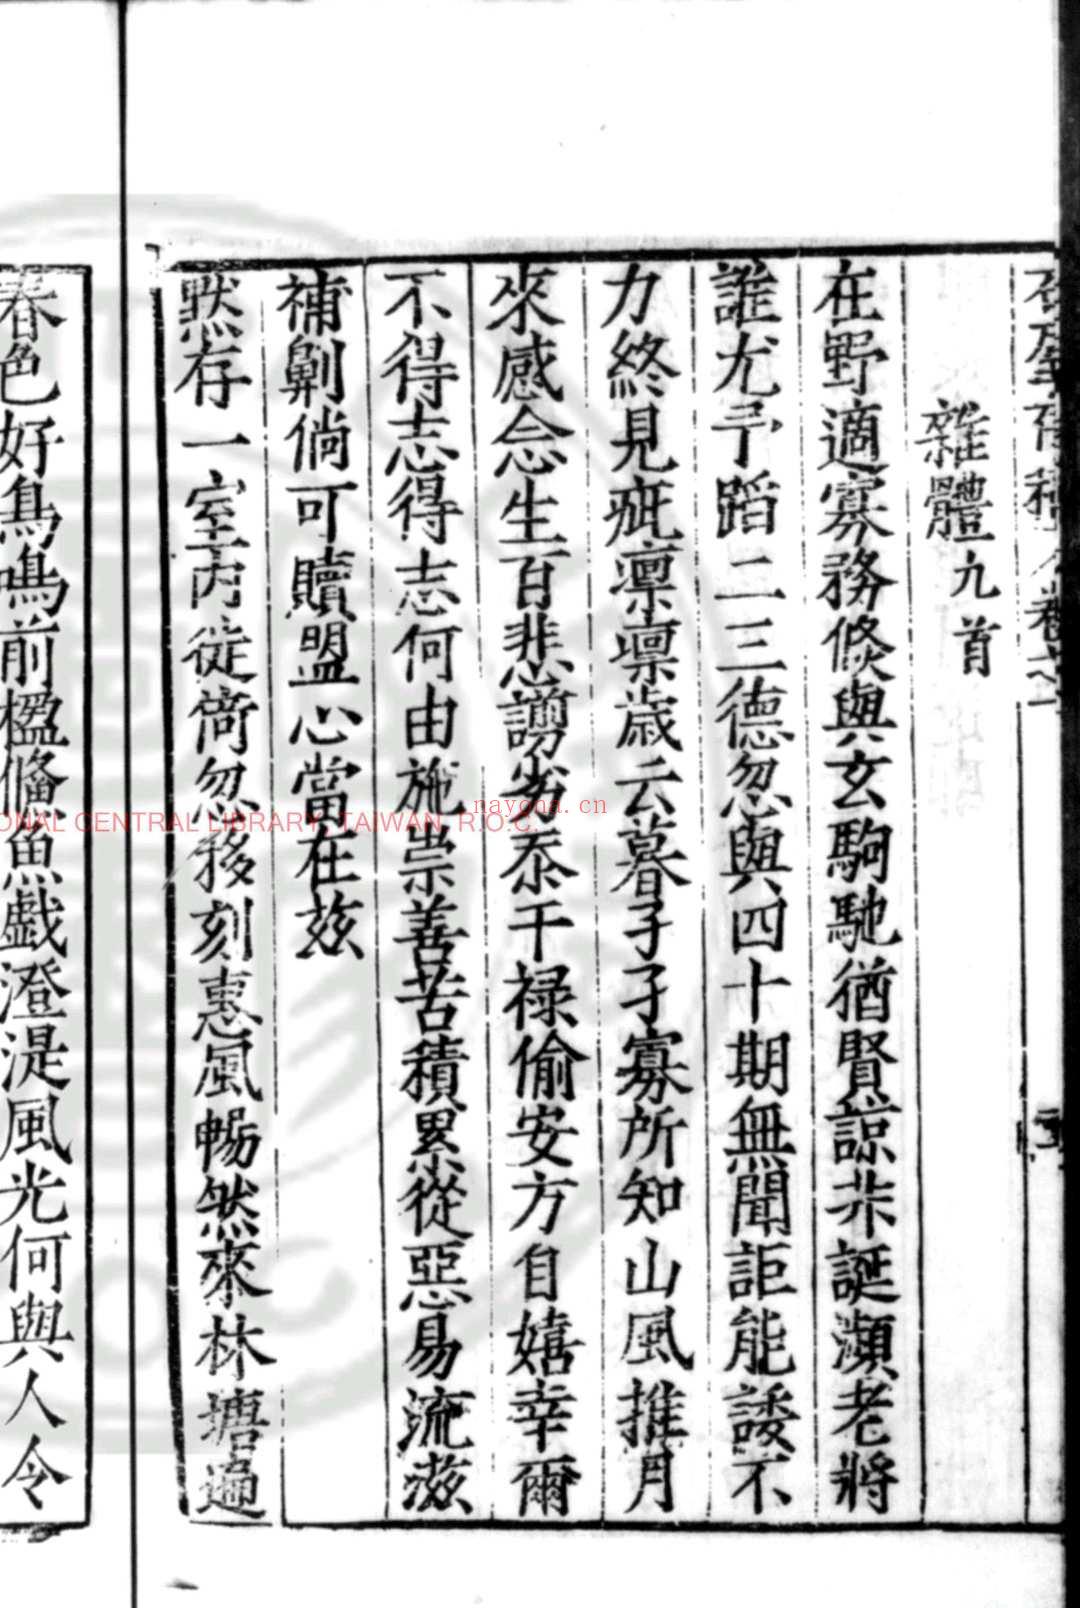 雜體九首
在野適寡務倐與玄駒馳猶賢諒非誕瀕老將
誰尤予蹈二三德忽與四十期無聞詎能諉不
力終見疵凛凛歲云暮孑孑寡所知山風推月
來感念生百悲謭劣忝干禄偷安方自嬉幸爾
不得志得志何由施祟善苦積累從惡易流滋
補劓倘可贖盟心當在兹
默存一室内徙倚忽移刻惠風暢然來林塘逼
春色好鳥鳴前楹鯈魚戯澄湜風光何與人令
NATIONAL CENTRAL LIBRARY, TAIWAN, R.O.C.
nayona.cn